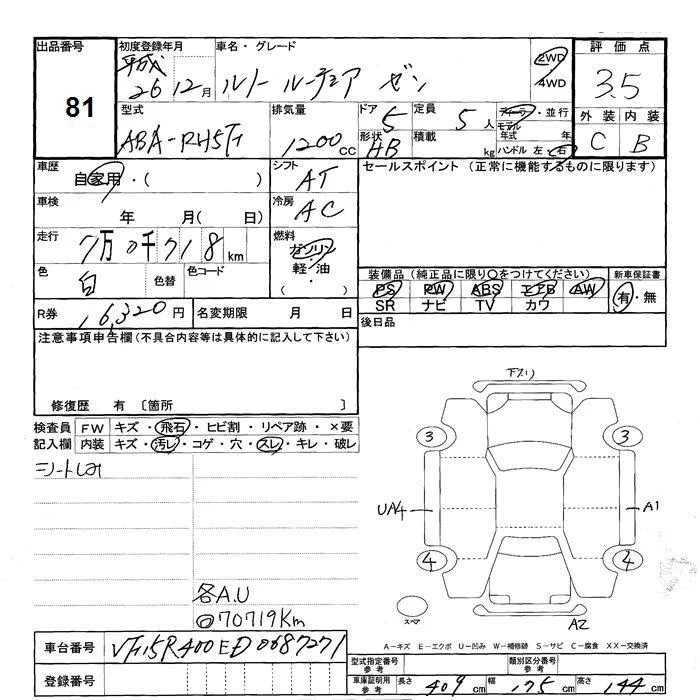 出品番号
81
初度登録年月
平成
26 12月
車名・グレード
ルノー ルーテシア ゼン
2WD
4WD
評価点
3.5
外装 内装
C B
型式
排気量
1200 cc
ドア 5
形状 HB
定員 5人
積載 kg
ディーラー・並行
モデル年式 年
ハンドル 左・右
車歴
自家用・( )
シフト
AT
セールスポイント (正常に機能するものに限ります)
車検
年 月( 日)
冷房
AC
走行
7万0千718km
燃料
ガソリン
軽・油
( ・ )
色
白
色替
色コード
装備品 (純正品に限り○をつけてください)
PS PW ABS エアB AW
SR ナビ TV カワ
新車保証書
有・無
R券 16,320円
名変期限 月 日
後日品
注意事項申告欄(不具合内容等は具体的に記入して下さい)
修復歴 有 〔箇所 〕
検査員記入欄
FW キズ・飛石・ヒビ割・リペア跡・×要
内装 キズ・汚レ・コゲ・穴・スレ・キレ・破レ
シートしみ
各A.U
◎70719Km
下スリ
3 3
UA4 A1
4 4
スペア
A2
A-キズ E-エクボ U-凹み W-補修跡 S-サビ C-腐食 XX-交換済
車台番号
登録番号
型式指定番号 参考
類別区分番号 参考
車庫証明用 参考
長さ 409cm 幅 175cm 高さ 144cm